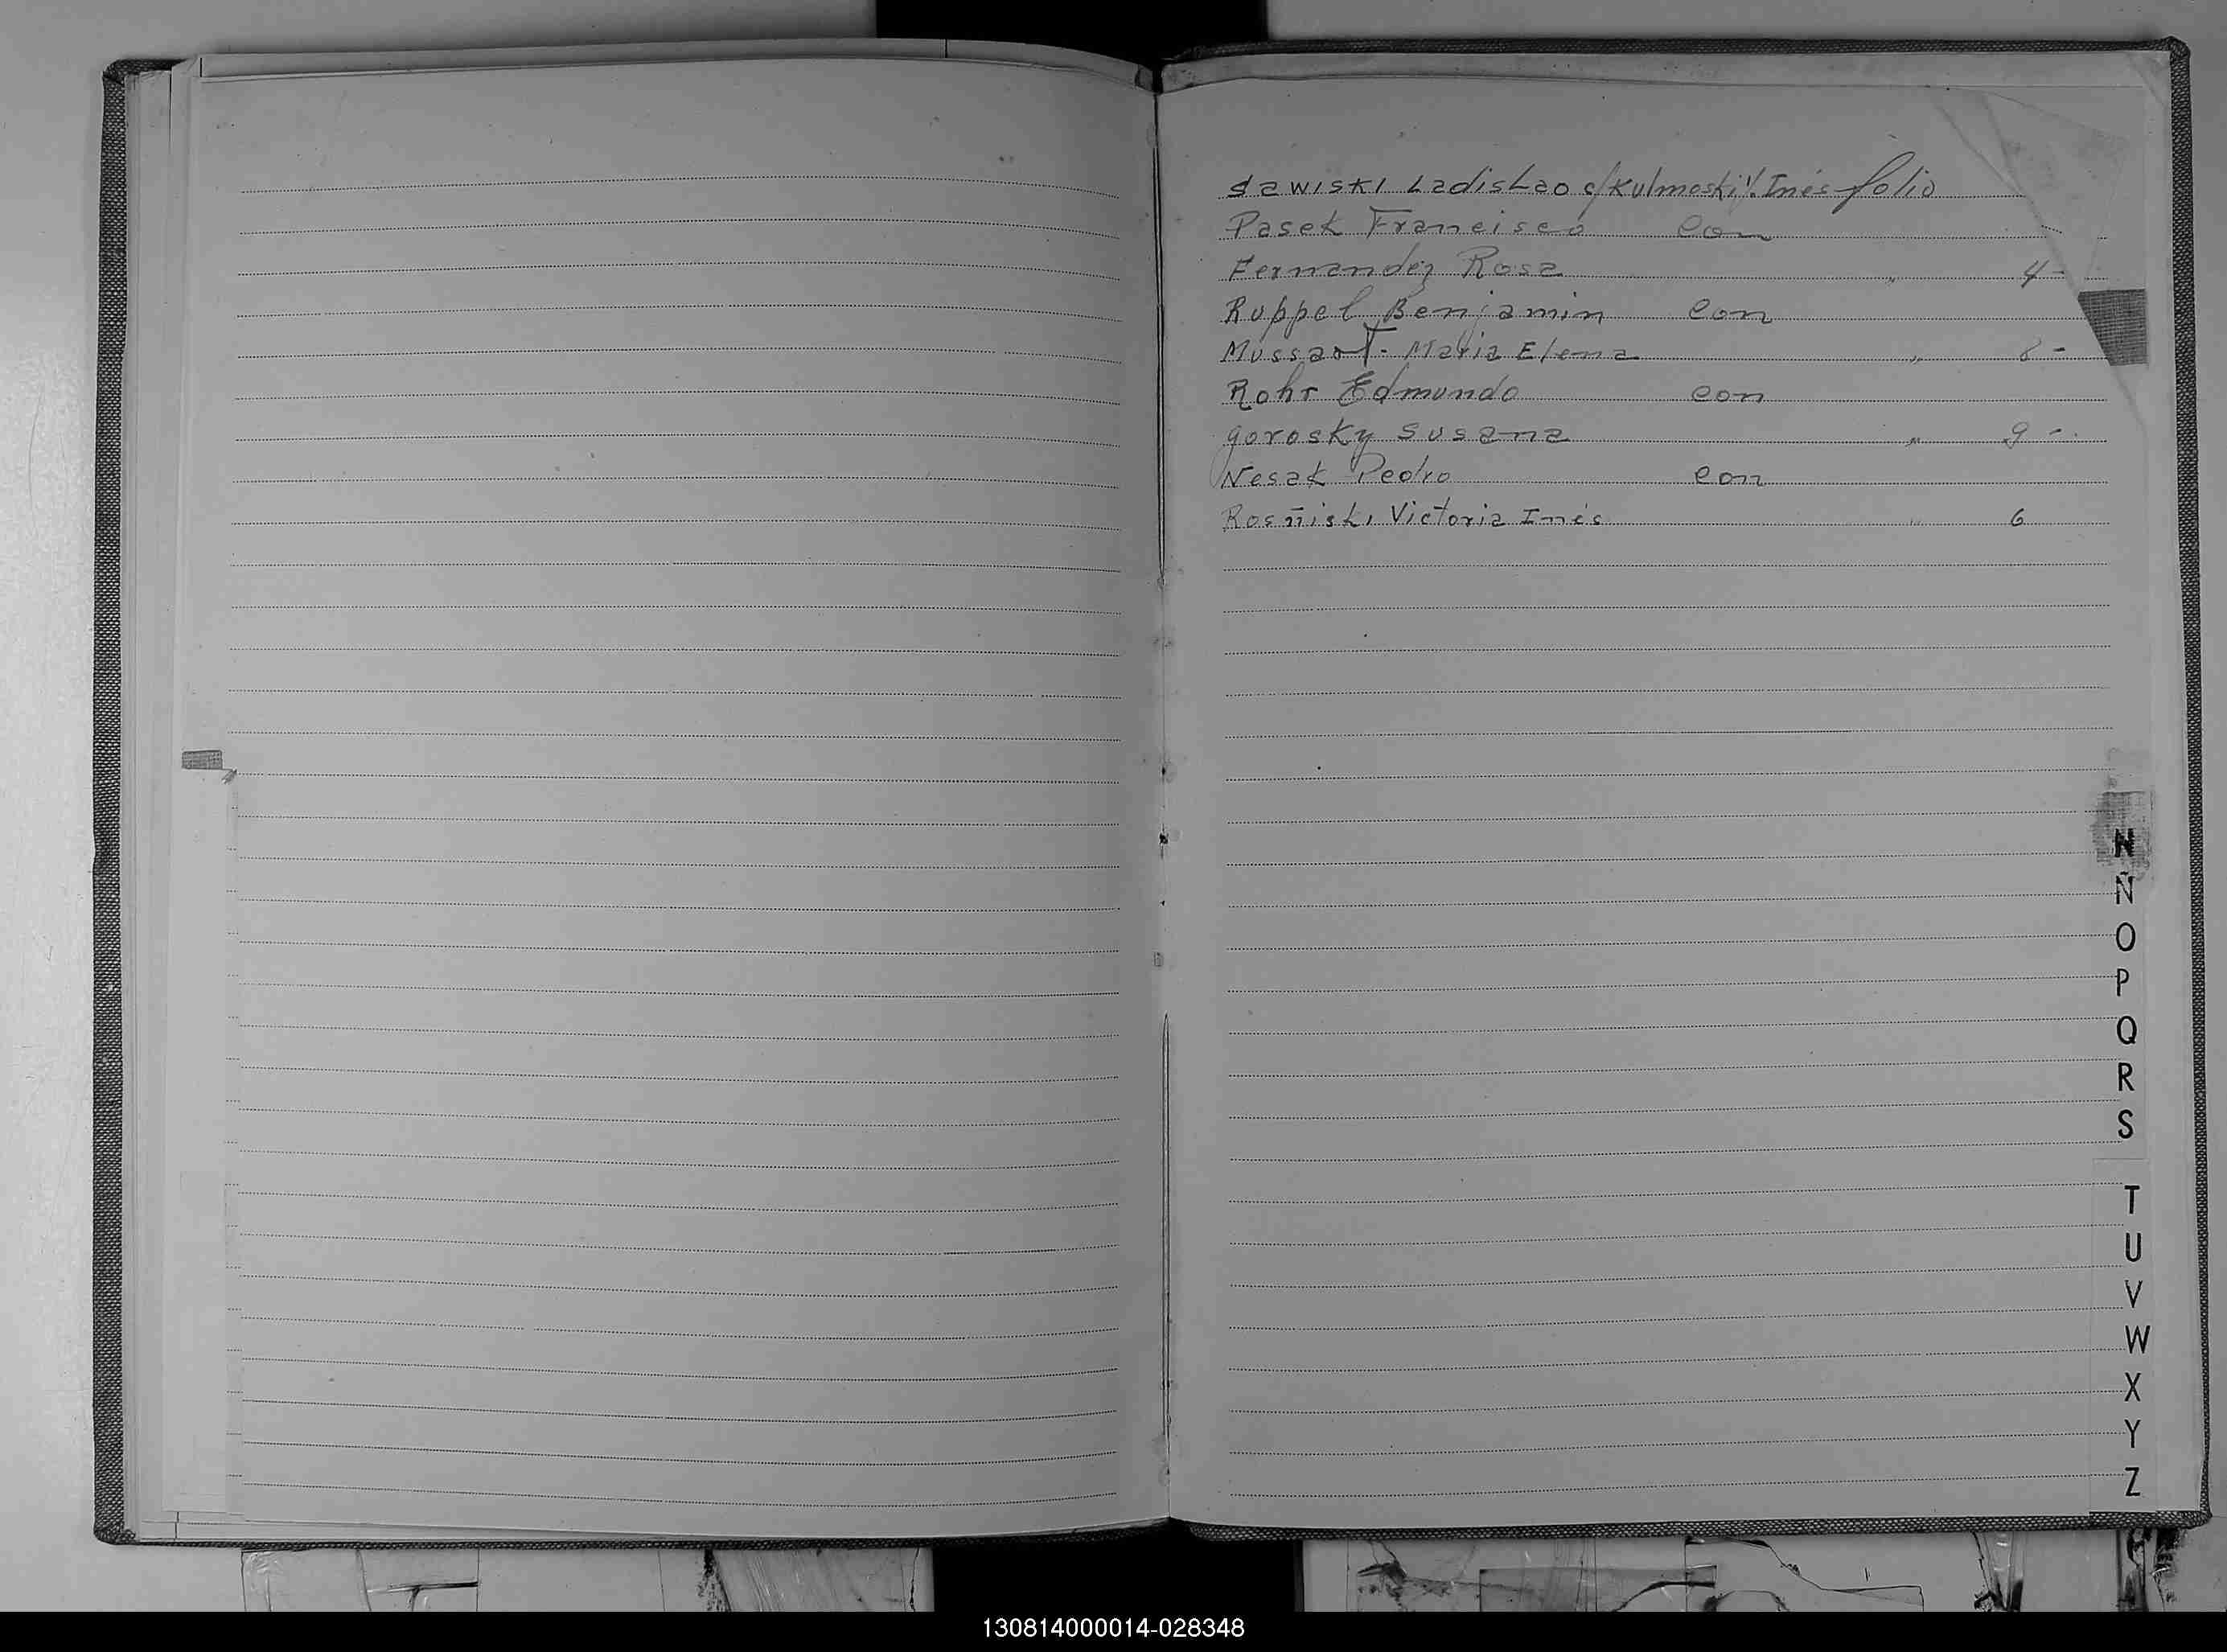 Sawiski Ladislao c/ Kulmoski V. Inés folio
Pasek Francisco con
Fernandez Rosa " 4-
Ruppel Benjamin con
Mussart- Maria Elena " 8-
Rohr Edmundo con
Gorosky Susana " 9-.
Nesak Pedro con
Rosñiski Victoria Inés " 6
N
Ñ
O
P
Q
R
S
T
U
V
W
X
Y
Z
130814000014-028348